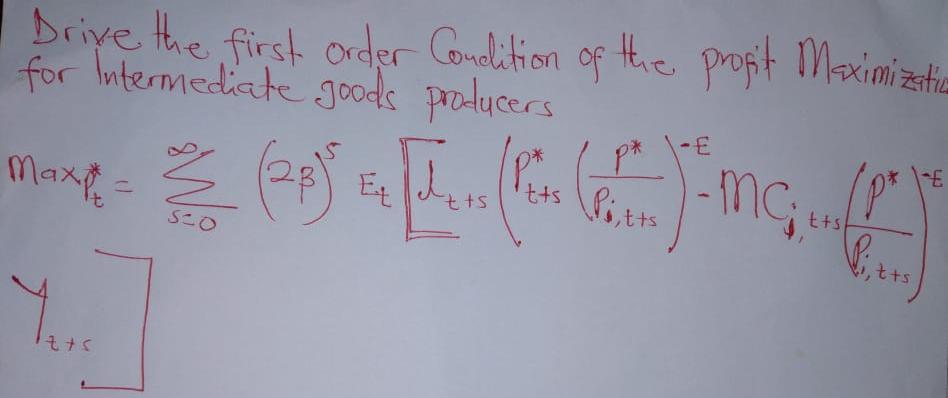 Drive the first order Condition of the profit Maximization
for Intermediate goods producers
Max P*_t = Σ_{s=0}^{∞} (2β)^s E_t [λ_{t+s} (P*_{t+s} (P*/P_{i,t+s})^{-ε} - MC_{j,t+s} (P*/P_{i,t+s})^{-ε}
Y_{t+s}]